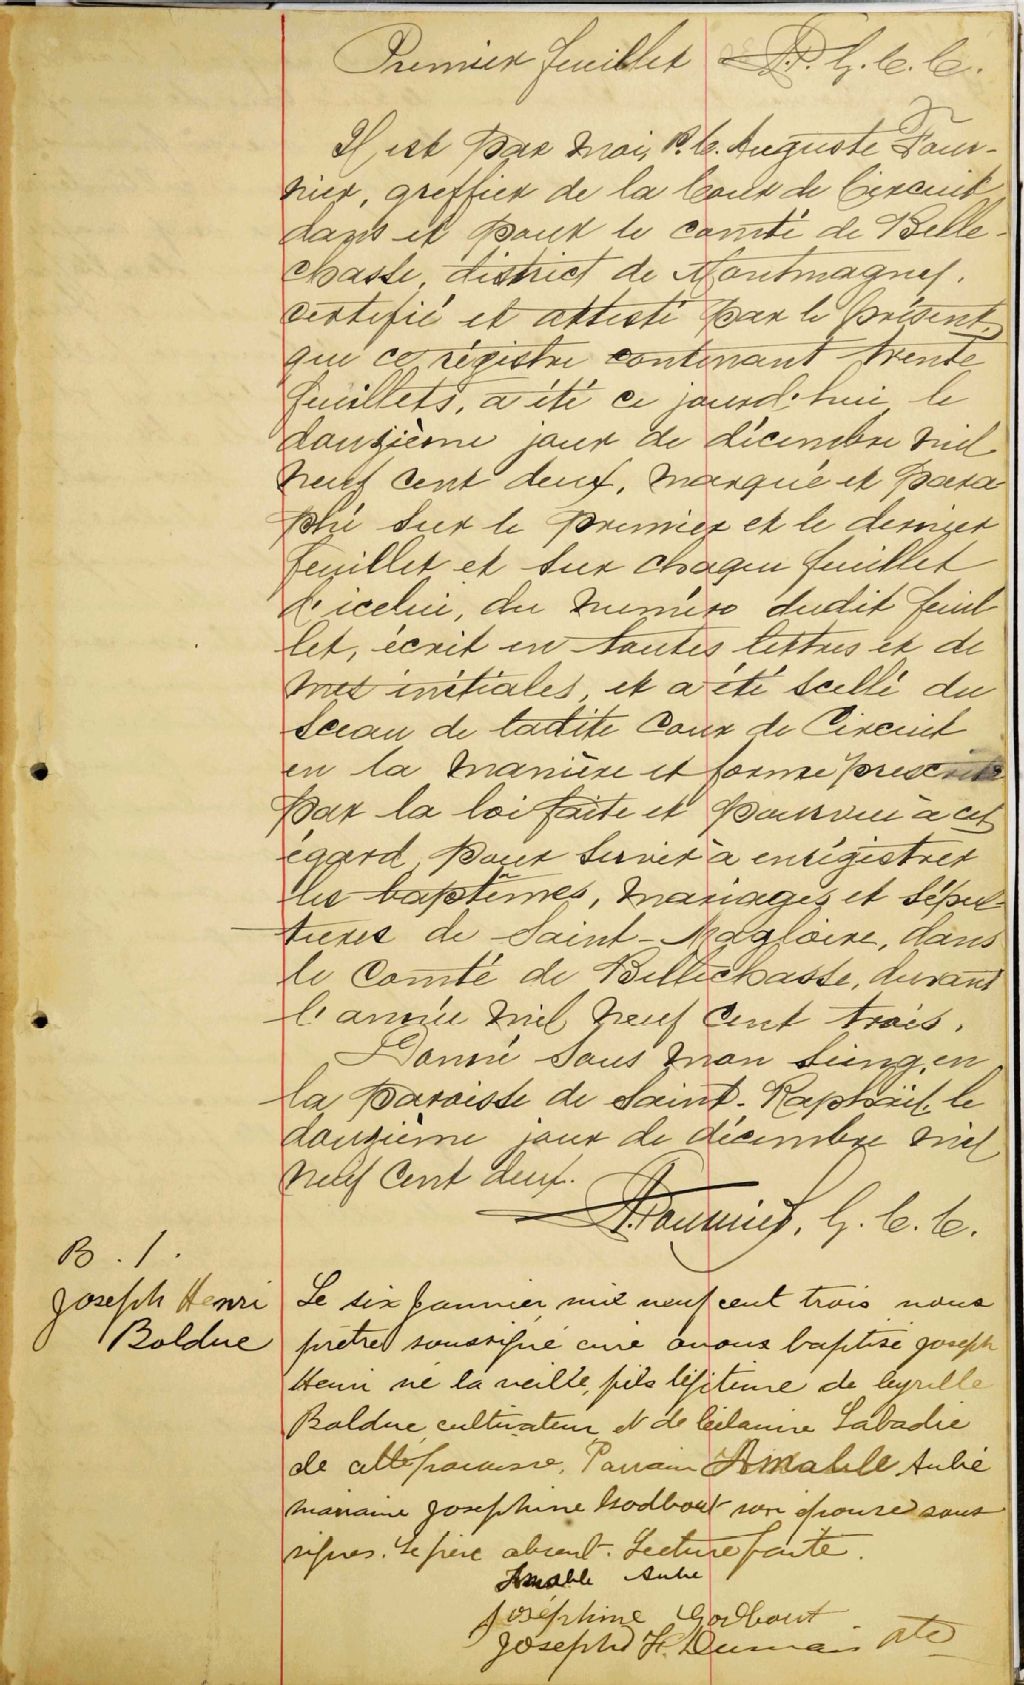 Premier feuillet P. G. C. C.
Il est par moi, P. C. Auguste Four-
nier, greffier de la Cour de Circuit
dans et pour le comté de Belle-
chasse, district de Montmagny,
certifié et attesté par le présent,
que ce régistre contenant trente
feuillets, a été ce jourd'hui le
douzième jour de décembre mil
neuf cent deux, marqué et para
phé sur le premier et le dernier
feuillet et sur chaque feuillet
d'icelui, du numéro dudit feuil
let, écrit en toutes lettres et de
mes initiales, et a été scellé du
sceau de ladite Cour de Circuit
en la manière et forme prescrite
par la loi faite et pourvue à cet
égard, pour servir à enrégistrer
les baptêmes, mariages et sépul-
tures de Saint-Magloire, dans
le Comté de Bellechasse, durant
l'année mil neuf cent trois.
Donné sous mon seing, en
la paroisse de Saint-Raphaël, le
douzième jour de décembre mil
neuf cent deux.
Fournier, G. C. C.
B. 1.
Joseph Henri
Bolduc
Le six Janvier mil neuf cent trois nous
prêtre soussigné curé avons baptisé Joseph
Henri né la veille, fils légitime de Cyrille
Bolduc cultivateur et de Célanire Labadie
de cette paroisse. Parrain Amable Aubé
marraine Josephine Godbout son épouse sous
signés. Le père absent. Lecture faite.
Amable Aubé
Joséphine Godbout
Joseph H. Dumais Ptre